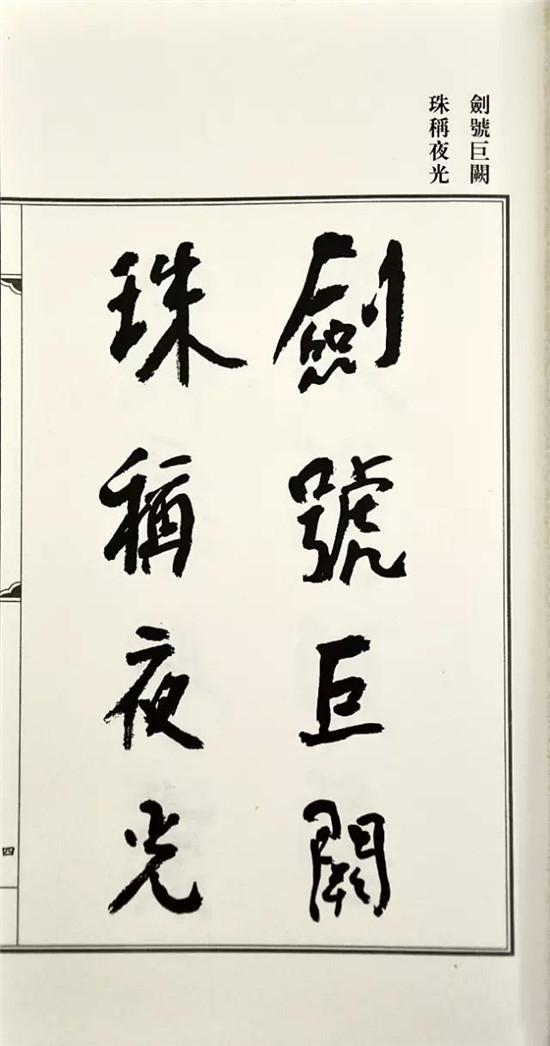 劍號巨闕
珠稱夜光
劍號巨闕
珠稱夜光
四